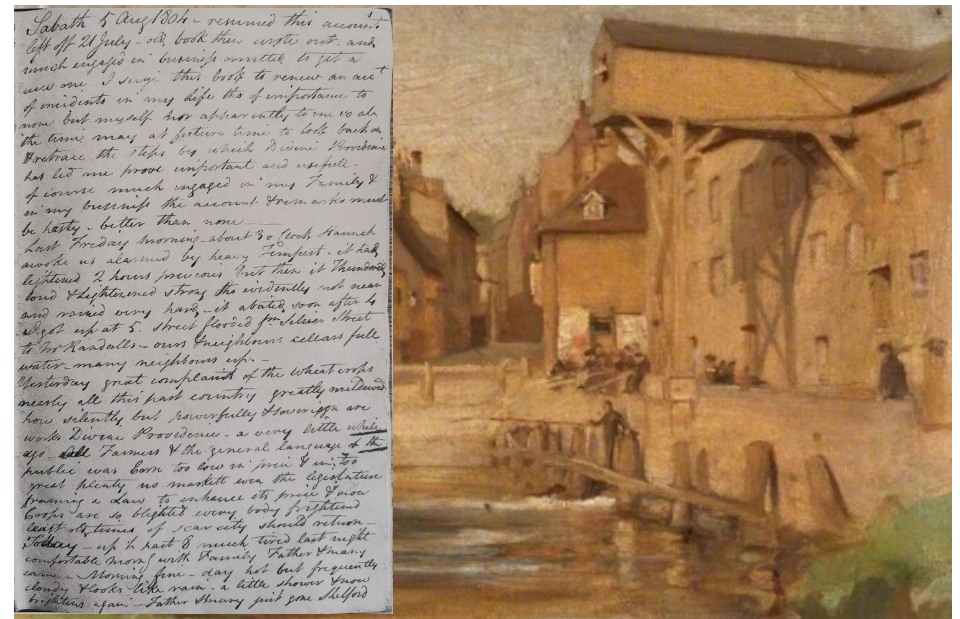 Sabath 5 Aug 1804 - resumed this account
left off 21 July - old book then wrote out - and
much engaged in business omitted to get a
new one. I seize this book to renew an acct
of incidents in my life tho of importance to
none but myself nor apparently to me so at
the time may at future time to look back on
& retrace the steps by which Divine Providence
has led me prove important and usefull -
of course much engaged in my Family &
in my business the account & remarks must
be hasty - better than none -
Last Friday morning - about 3 o Clock Hannah
awoke us alarmed by heavy Tempest - it had
lightened 2 hours previous but then it Thundered
loud & Lightened strong tho evidently not near
and rained very hard - it abated soon after 4
I got up at 5. street flooded fm Silver Street
to Mr Randalls - ours & neighbours cellars full
water - many neighbours up. -
Yesterday great complaints of the wheat crops
nearly all this part country greatly mildewed
how silently but powerfully & sovereign are
works Divine Providence - a very little while
ago - Farmers & the general language of the
public was Corn too low in price & in too
great plenty no markett even the legislature
framing a Law to enhance its price & now
Crops are so blighted every body frightened
least old times of scarcity should return -
Today - up ½ past 8 much tired last night
comfortable morng with Family Father & Mary
same - Morning fine - day hot but frequently
cloudy & looks like rain - a little shower & now
brightens again - Father & Mary just gone Shelford